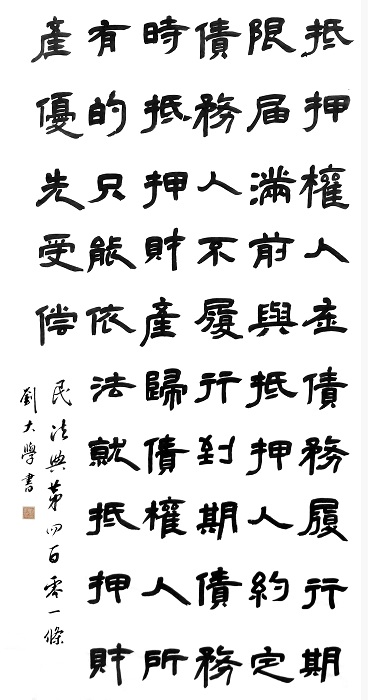 抵押權人在債務履行期
限届滿前與抵押人約定
債務人不履行到期債務
時抵押財產歸債權人所
有的只能依法就抵押財
產優先受偿
民法典第四百零一條
劉大學書